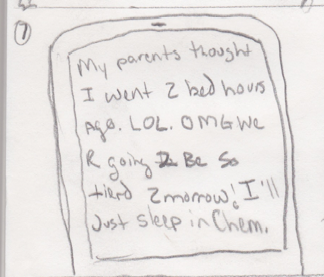 7
My parents thought
I went 2 bed hours
ago. LOL. OMG We
R going 2 Be So
tierd 2morrow! I'll
Just sleep in Chem.